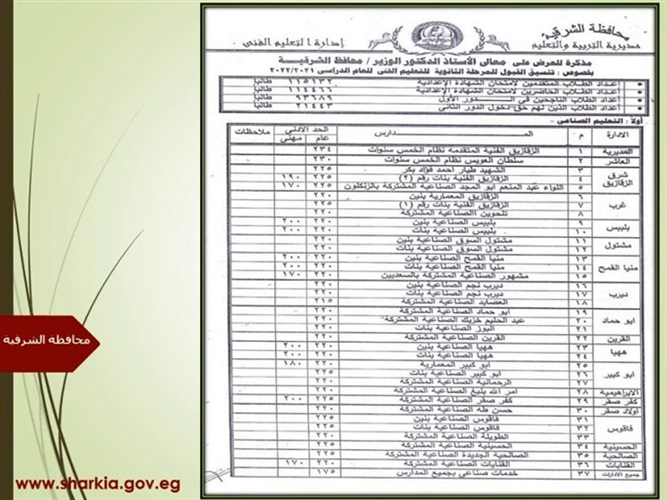 محافظة الشرقية
مديرية التربية والتعليم
إدارة التعليم الفنى
مذكرة للعرض على معالى الأستاذ الدكتور الوزير / محافظ الشرقية
بخصوص : تنسيق القبول للمرحلة الثانوية للتعليم الفنى للعام الدراسى ٢٠٢٢/٢٠٢١
أعداد الطلاب المتقدمين لامتحان الشهادة الإعدادية ١١٥١٣٢ طالباً
أعداد الطلاب الحاضرين لامتحان الشهادة الإعدادية ١١٤٤٦٦ طالباً
أعداد الطلاب الناجحين فى الدور الأول ٩٣٦٨٩ طالباً
أعداد الطلاب الذين لهم حق دخول الدور الثانى ٢١٤٤٣ طالباً
أولا : التعليم الصناعى :
الادارة م المدارس الحد الأدنى ملاحظات
عام مهنى
المديرية ١ الزقازيق الفنية المتقدمة نظام الخمس سنوات ٢٣٤
العاشر ٢ سلطان العويس نظام الخمس سنوات ٢٣٠
شرق الزقازيق ٣ الشهيد طيار احمد فؤاد بكر ٢٢٥
٤ الزقازيق الفنية بنات رقم (٢) ٢٢٥ ١٩٠
٥ اللواء عبد المنعم ابو المجد الصناعية المشتركة بالزنكلون ٢٢٠ ١٧٠
غرب ٦ الزقازيق المعمارية بنين
٧ الزقازيق الفنية بنات رقم (١)
٨ تلحوين الصناعية المشتركة ٢٢٠
بلبيس ٩ بلبيس الصناعية بنين ٢٢٠ ٢٠٠
١٠ بلبيس الصناعية بنات ٢٠٠
مشتول ١١ مشتول السوق الصناعية بنين ٢٢٠
١٢ مشتول السوق الصناعية بنات ٢٢٠
منيا القمح ١٣ منيا القمح الصناعية بنين ٢٢٠ ٢٠٠
١٤ منيا القمح الصناعية بنات ٢٢٠ ٢٠٠
١٥ مشهور الصناعية المشتركة بالسعديين ٢٢٠ ١٧٠
ديرب ١٦ ديرب نجم الصناعية بنين ٢٢٠
١٧ ديرب نجم الصناعية بنات ٢٢٠
١٨ العصايد الصناعية المشتركة ٢١٥
ابو حماد ١٩ ابو حماد الصناعية المشتركة ٢٢٠
٢٠ عبد الحليم الصناعية المشتركة ٢٢٠
٢١ الصناعية بنات ٢٢٠
القرين ٢٢ القرين الصناعية المشتركة ٢٢٠
ههيا ٢٣ ههيا الصناعية بنين ٢٢٠ ٢٠٠
٢٤ ههيا الصناعية بنات ٢٢٠ ٢٠٠
ابو كبير ٢٥ ابو كبير المعمارية ٢٢٠ ١٨٠
٢٦ ابو كبير الصناعية بنات
٢٧ الرحمانية الصناعية المشتركة ٢٢٠
الابراهيمية ٢٨ امر الله بليغ الصناعية المشتركة ٢٢٠
كفر صقر ٢٩ كفر صقر الصناعية المشتركة ٢٠٠
اولاد صقر ٣٠ حسن طه الصناعية المشتركة ٢٢٥
فاقوس ٣١ فاقوس الصناعية بنين ٢٢٥
٣٢ فاقوس الصناعية بنات
٣٣ الطويلة الصناعية المشتركة ٢٢٠
الحسينية ٣٤ الحسينية الصناعية المشتركة ٢٢٥
الصالحية ٣٥ الصالحية الجديدة الصناعية المشتركة
القنايات ٣٦ القنايات الصناعية المشتركة ٢٢٠ ١٧٠
جميع الادارات ٣٧ خدمات صناعى بجميع المدارس ١٧٥
محافظة الشرقية
www.sharkia.gov.eg